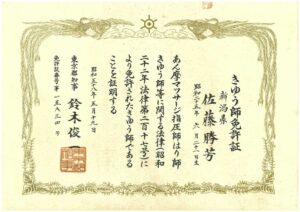 きゆう師免許証
新潟県
佐藤勝芳
昭和二十五年 六月二一日生
あん摩マツサージ指圧師はり師
きゆう師等に関する法律(昭和
二十二年法律第二百十七号)に
より免許されたきゆう師である
ことを証明する
昭和五八年五月十九日
東京都知事 鈴木俊一
免許証番号 第一五八三四号